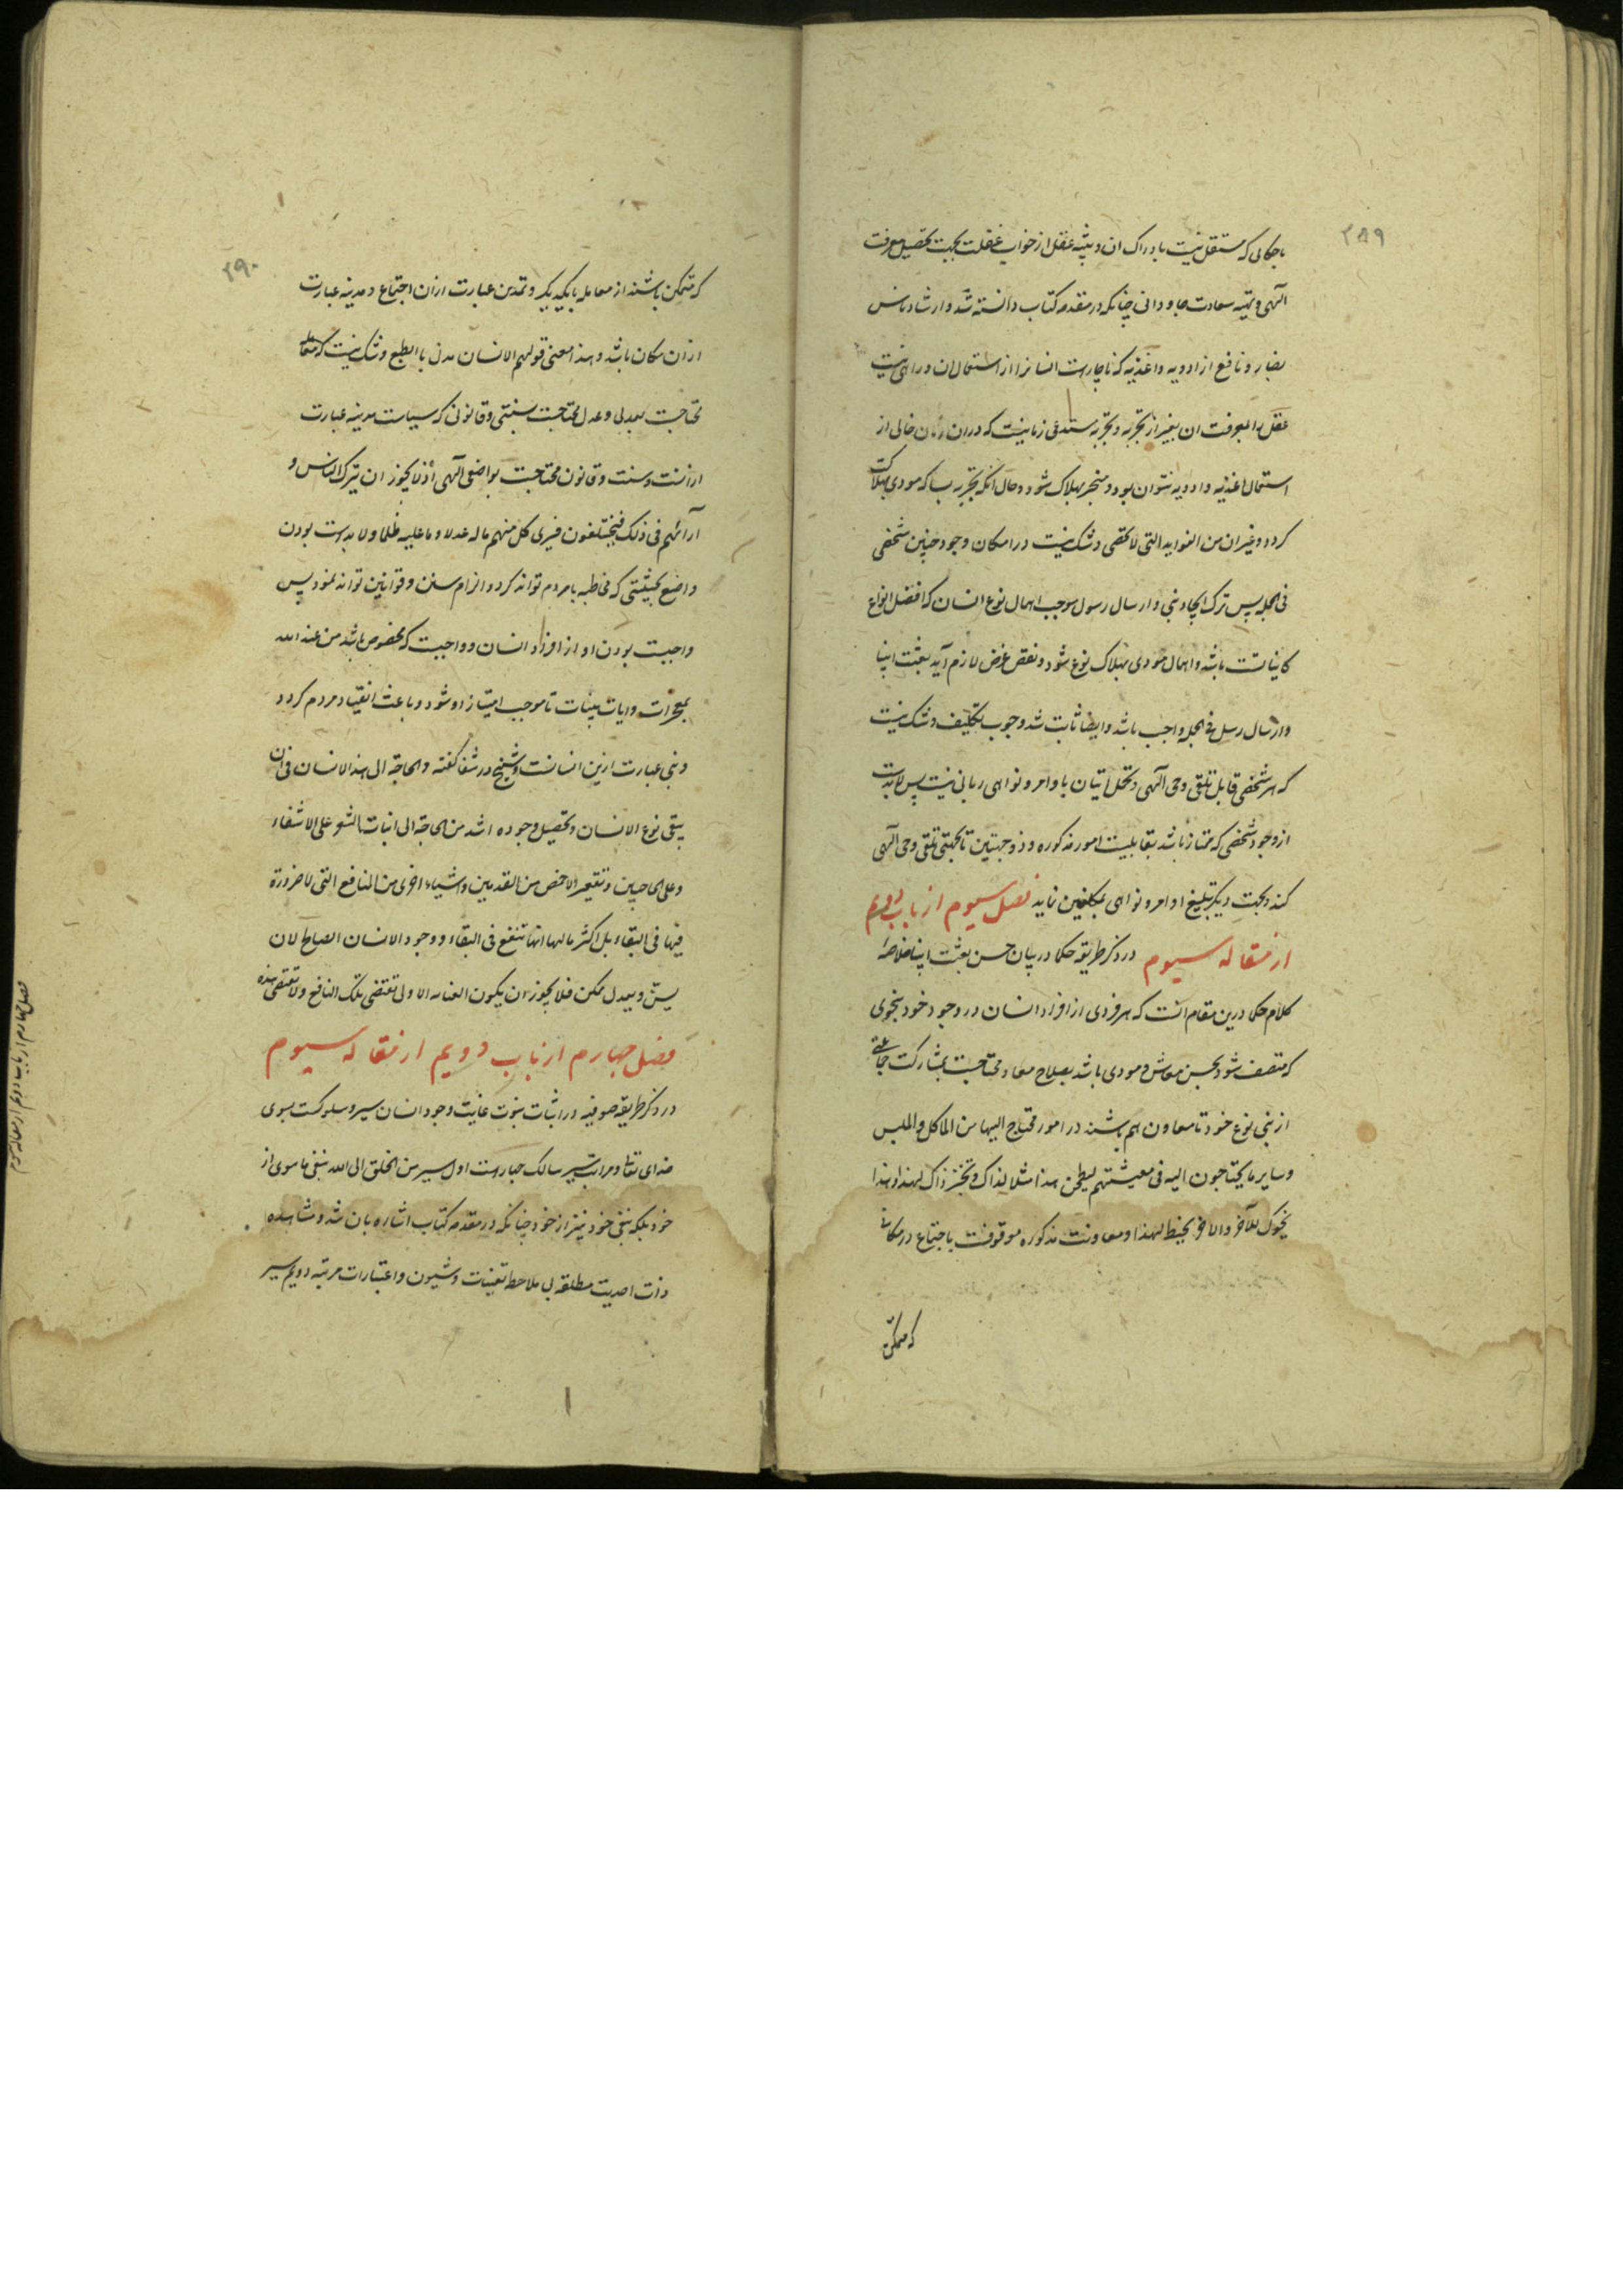 ۲۸۹
باحکامی که مستقل نیست بادراک ان و تنبیه عقل از خواب غفلت بجهت تحصیل معرفت
الهی و تهیه سعادت جاودانی چنانکه در مقدمه کتاب دانسته شد و ارشاد ناس
بضار و نافع از ادویه و اغذیه که ناچارست انسانرا از استعمال ان و راهی نیست
عقل را بمعرفت ان بغیر از تجربه و تجربه مستدعی زمانیست که دران زمان خالی از
استعمال اغذیه و ادویه نتوان بود و منجر بهلاک شود و حال انکه تجربه بسا که مودی بهلاکت
کردد و غیر ان من الفواید التی لا تحصی و شک نیست در امکان وجود چنین شخصی
فی الجمله پس ترک ایجاد نبی و ارسال رسول موجب اهمال نوع انسان که افضل انواع
کایناتست باشد و اهمال مودی بهلاک نوع شود و نقض غرض لازم آید پس بعثت انبیا
و ارسال رسل فی الجمله واجب باشد و ایضا ثابت شد وجوب تکلیف و شک نیست
که هر شخصی قابل تلقی وحی آلهی و تحمل اتیان باوامر و نواهی ربانی نیست پس لابدست
از وجود شخصی که ممتاز باشد بقابلیت امور مذکوره و ذو جهتین تا بجهتی تلقی وحی آلهی
کند و بجهت دیکر تبلیغ اوامر و نواهی بمکلفین نماید فصل سیوم از باب دویم
از مقاله سیوم در ذکر طریقه حکما در بیان حسن بعثت انبیا خلاصهٔ
کلام حکما درین مقام انست که هر فردی از افراد انسان در وجود خود بنحوی
که متصف شود بحسن معاش و مودی باشد بصلاح معاد محتاجست بمشارکت جماعتی
از بنی نوع خود تا معاون هم باشند در امور محتاج الیها من الماکل و الملبس
و سایر ما یحتاجون الیه فی معیشتهم لیطحن هذا مثلا لذاک و یخبز ذاک لهذا و هذا
یحوک للآخر والاخر یخیط لهذا و معاونت مذکوره موقوفست باجتماع در مکانی
که متمکن
۲۹۰
که متمکن باشند از معامله با یکدیکر و تمدن عبارت ازان اجتماع و مدینه عبارت
ازان مکان باشد و هذا معنی قولهم الانسان مدنی بالطبع و شک نیست که معامله
محتاجست بعدلی و عدل محتاجست بسنتی و قانونی که سیاست مدینه عبارت
ازانست و سنت و قانون محتاجست بواضعی آلهی اذ لا یجوز ان یترک الناس و
آرائهم فی ذلک فیختلفون فیری کل منهم ما له عدلا و ما علیه ظلما و لا بدست بودن
واضع بحیثیتی که مخاطبه بامردم تواند کرد و الزام سنن و قوانین تواند نمود پس
واجبست بودن او از افراد انسان و واجبست که مخصوص باشد من عند الله
بمعجزات و ایات بینات تا موجب امتیاز او شود و باعث انقیاد مردم کردد
و نبی عبارت ازین انسانست و شیخ در شفا کفته والحاجة الی هذا الانسان فی ان
یبقی نوع الانسان و تحصیل وجوده اشد من الحاجة الی انبات الشعر علی الاشفار
و علی الحاجبین و تقعیر الاخمص من القدمین و اشیاء اخری من المنافع التی لا ضرورة
فیها فی البقاء بل اکثر ما لها انها تنفع فی البقاء و وجود الانسان الصالح لان
یسن و یعدل ممکن فلا یجوز ان یکون العنایه الاولی تقتضی تلک المنافع و لا تقتضی هذه
فصل چهارم از باب دویم از مقاله سیوم
در ذکر طریقه صوفیه در اثبات نبوت غایت وجود انسان سیر و سلوکست بسوی
خدای تعالی و مراتب سیر سالک چهارست اول سیر من الخلق الی الله بنفی ماسوی از
خود بلکه بنفی خود نیز از خود چنانکه در مقدمه کتاب اشاره بان شد و مشاهده
ذات احدیت مطلقه بی ملاحظه تعینات و شیون و اعتبارات مرتبه دویم سیر
فصل چهارم از باب دویم از مقاله سیوم